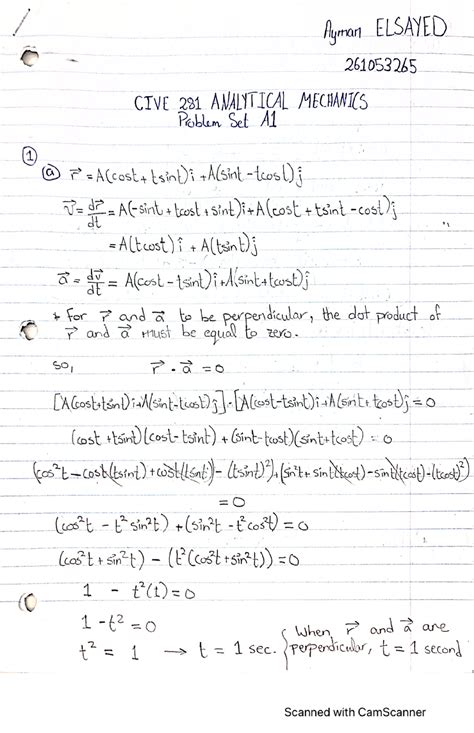 Ayman ELSAYED
261053265
CIVE 281 ANALYTICAL MECHANICS
Problem Set A1
①
ⓐ r⃗ = A(cost + tsint)i + A(sint - tcost)j
v⃗ = dr⃗/dt = A(-sint + tcost + sint)i + A(cost + tsint - cost)j
= A(tcost)i + A(tsint)j
a⃗ = dv⃗/dt = A(cost - tsint)i + A(sint + tcost)j
* For r⃗ and a⃗ to be perpendicular, the dot product of
r⃗ and a⃗ must be equal to zero.
so, r⃗ · a⃗ = 0
[A(cost+tsint)i+A(sint-tcost)j]·[A(cost-tsint)i+A(sint+tcost)j = 0
(cost + tsint)(cost - tsint) + (sint - tcost)(sint + tcost) = 0
(cos²t - cost(tsint) + cost(tsint) - (tsint)²) + (sin²t + sint(tcost) - sint(tcost) - (tcost)²)
= 0
(cos²t - t²sin²t) + (sin²t - t²cos²t) = 0
(cos²t + sin²t) - (t²(cos²t + sin²t)) = 0
1 - t²(1) = 0
1 - t² = 0
t² = 1 → t = 1 sec. { When r⃗ and a⃗ are
perpendicular, t = 1 second
Scanned with CamScanner